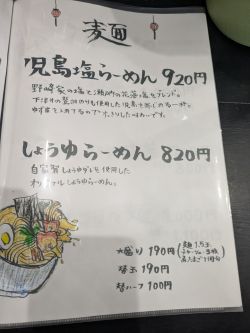 麦麺
児島塩らーめん 920円
野崎家の塩と瀬戸内の花藻塩をブレンド。
下津井の
しょうゆらーめん 820円
自家製しょうゆダレを使用した
オリジナルしょうゆらーめん。
大盛り 190円 (麺1.5玉
替玉 190円
替ハーフ 100円